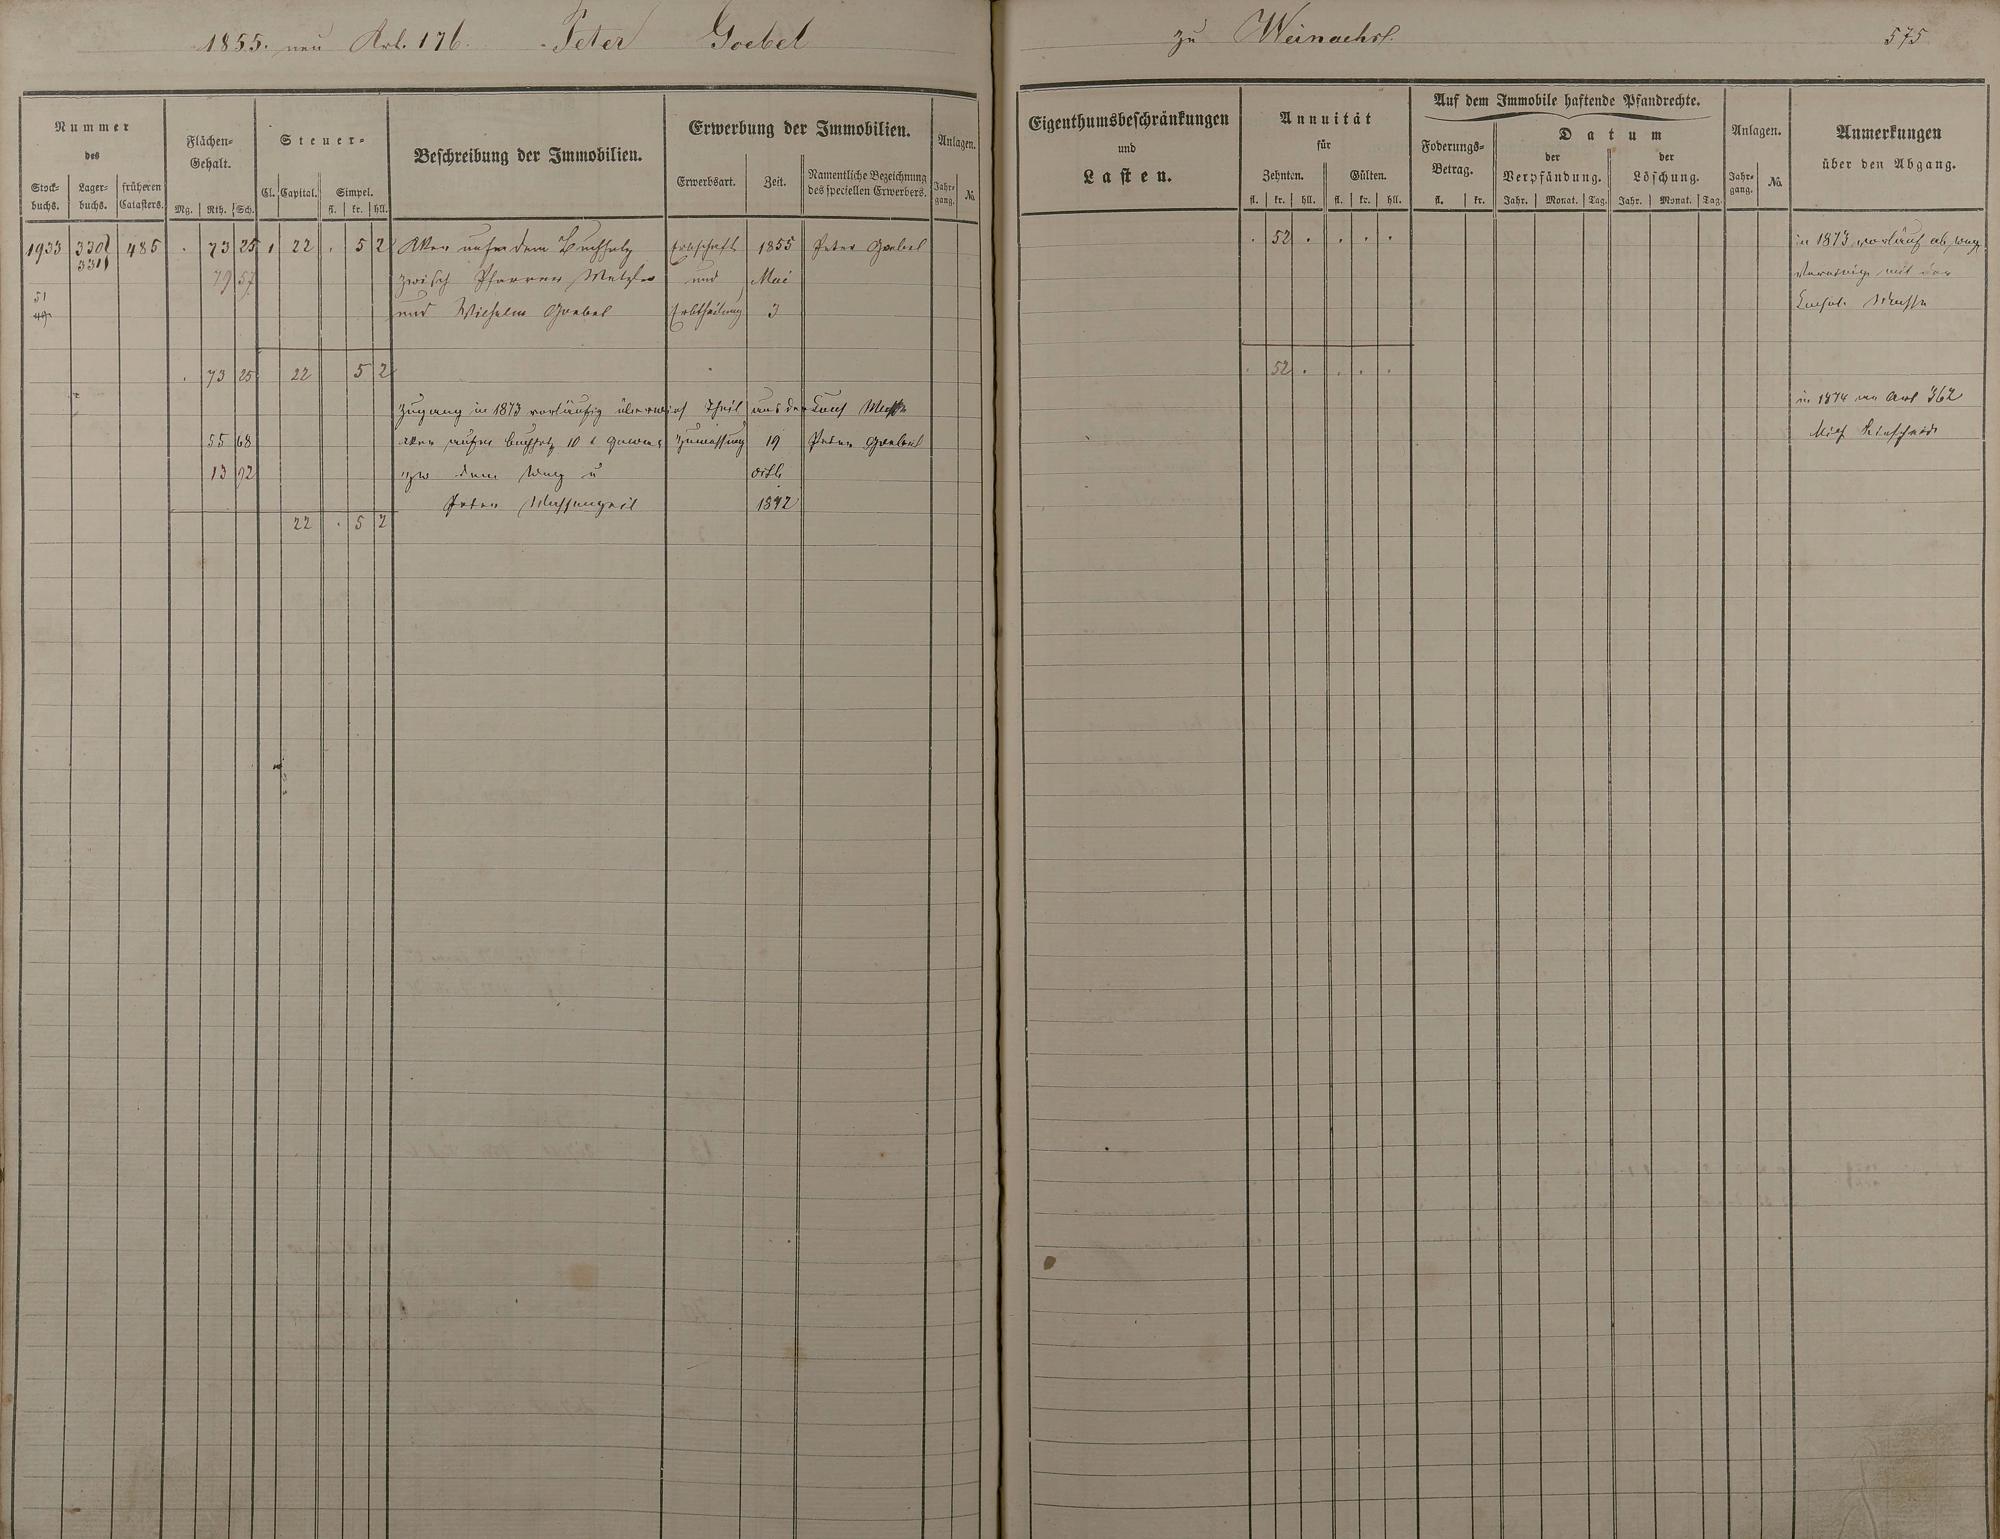 1855. neu Art. 176. Peter Goebel
zu Weinaehr. 575
Nummer
des
Stock-
buchs.
Lager-
buchs.
früheren
Catasters.
Flächen-
Gehalt.
Mg. Rth. Sch.
Steuer-
Cl. Capital. Simpel.
fl. kr. hll.
Beschreibung der Immobilien.
Erwerbung der Immobilien.
Erwerbsart. Zeit. Namentliche Bezeichnung
des speciellen Erwerbers.
Anlagen.
Jahr-
gang. No.
Eigenthumsbeschränkungen
und
Lasten.
Annuität
für
Zehnten. Gülten.
fl. kr. hll. fl. kr. hll.
Auf dem Immobile haftende Pfandrechte.
Foderungs-
Betrag.
fl. kr.
Datum
der
Verpfändung.
der
Löschung.
Jahr. Monat. Tag. Jahr. Monat. Tag.
Anlagen.
Jahr-
gang. No.
Anmerkungen
über den Abgang.
1933 330 485 73 25 1 22 5 2 Acker auf dem Buchholz Erbschaft 1855 Peter Goebel
331
79 57 zwisch Pfarrer Metzler und Mai
51 und Wilhelm Goebel Erbtheilung 3
73 25 22 5 2
Zugang in 1873 vorläufig Theil aus der Cons Masse
55 68 Acker aufm Buchholz 10 t Gewan Zumessung 19 Peter Goebel
13 92 zw dem Weg u
Peter 1872
22 5 2
52
52
in 1873 vorläuf ab weg
Vereinig mit der
Consol. Masse
in 1874 an Art 362